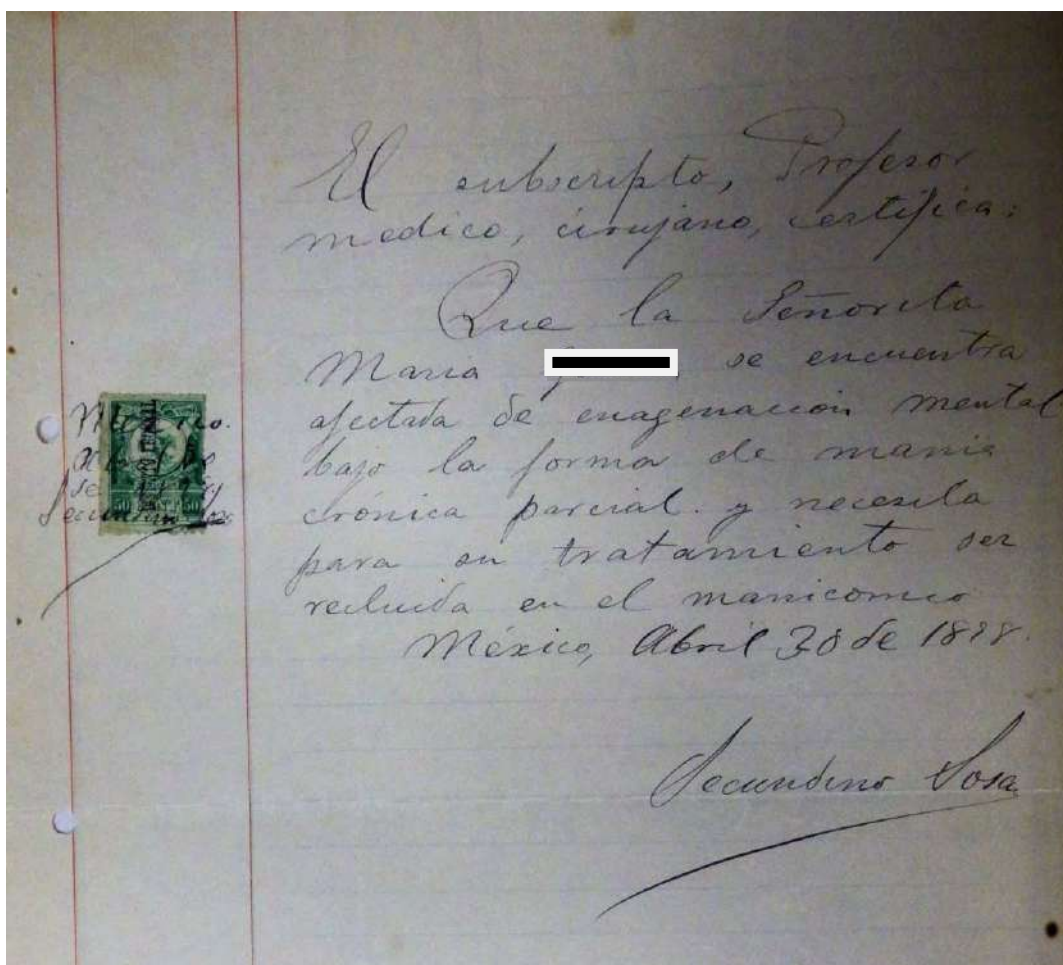 El subscripto, Profesor
medico, cirujano, certifica:
Que la Señorita
Maria se encuentra
afectada de enagenación mental
bajo la forma de mania
crónica parcial. y necesita
para su tratamiento ser
recluida en el manicomio
México, Abril 30 de 1898.
Secundino Sosa
México.
50 50